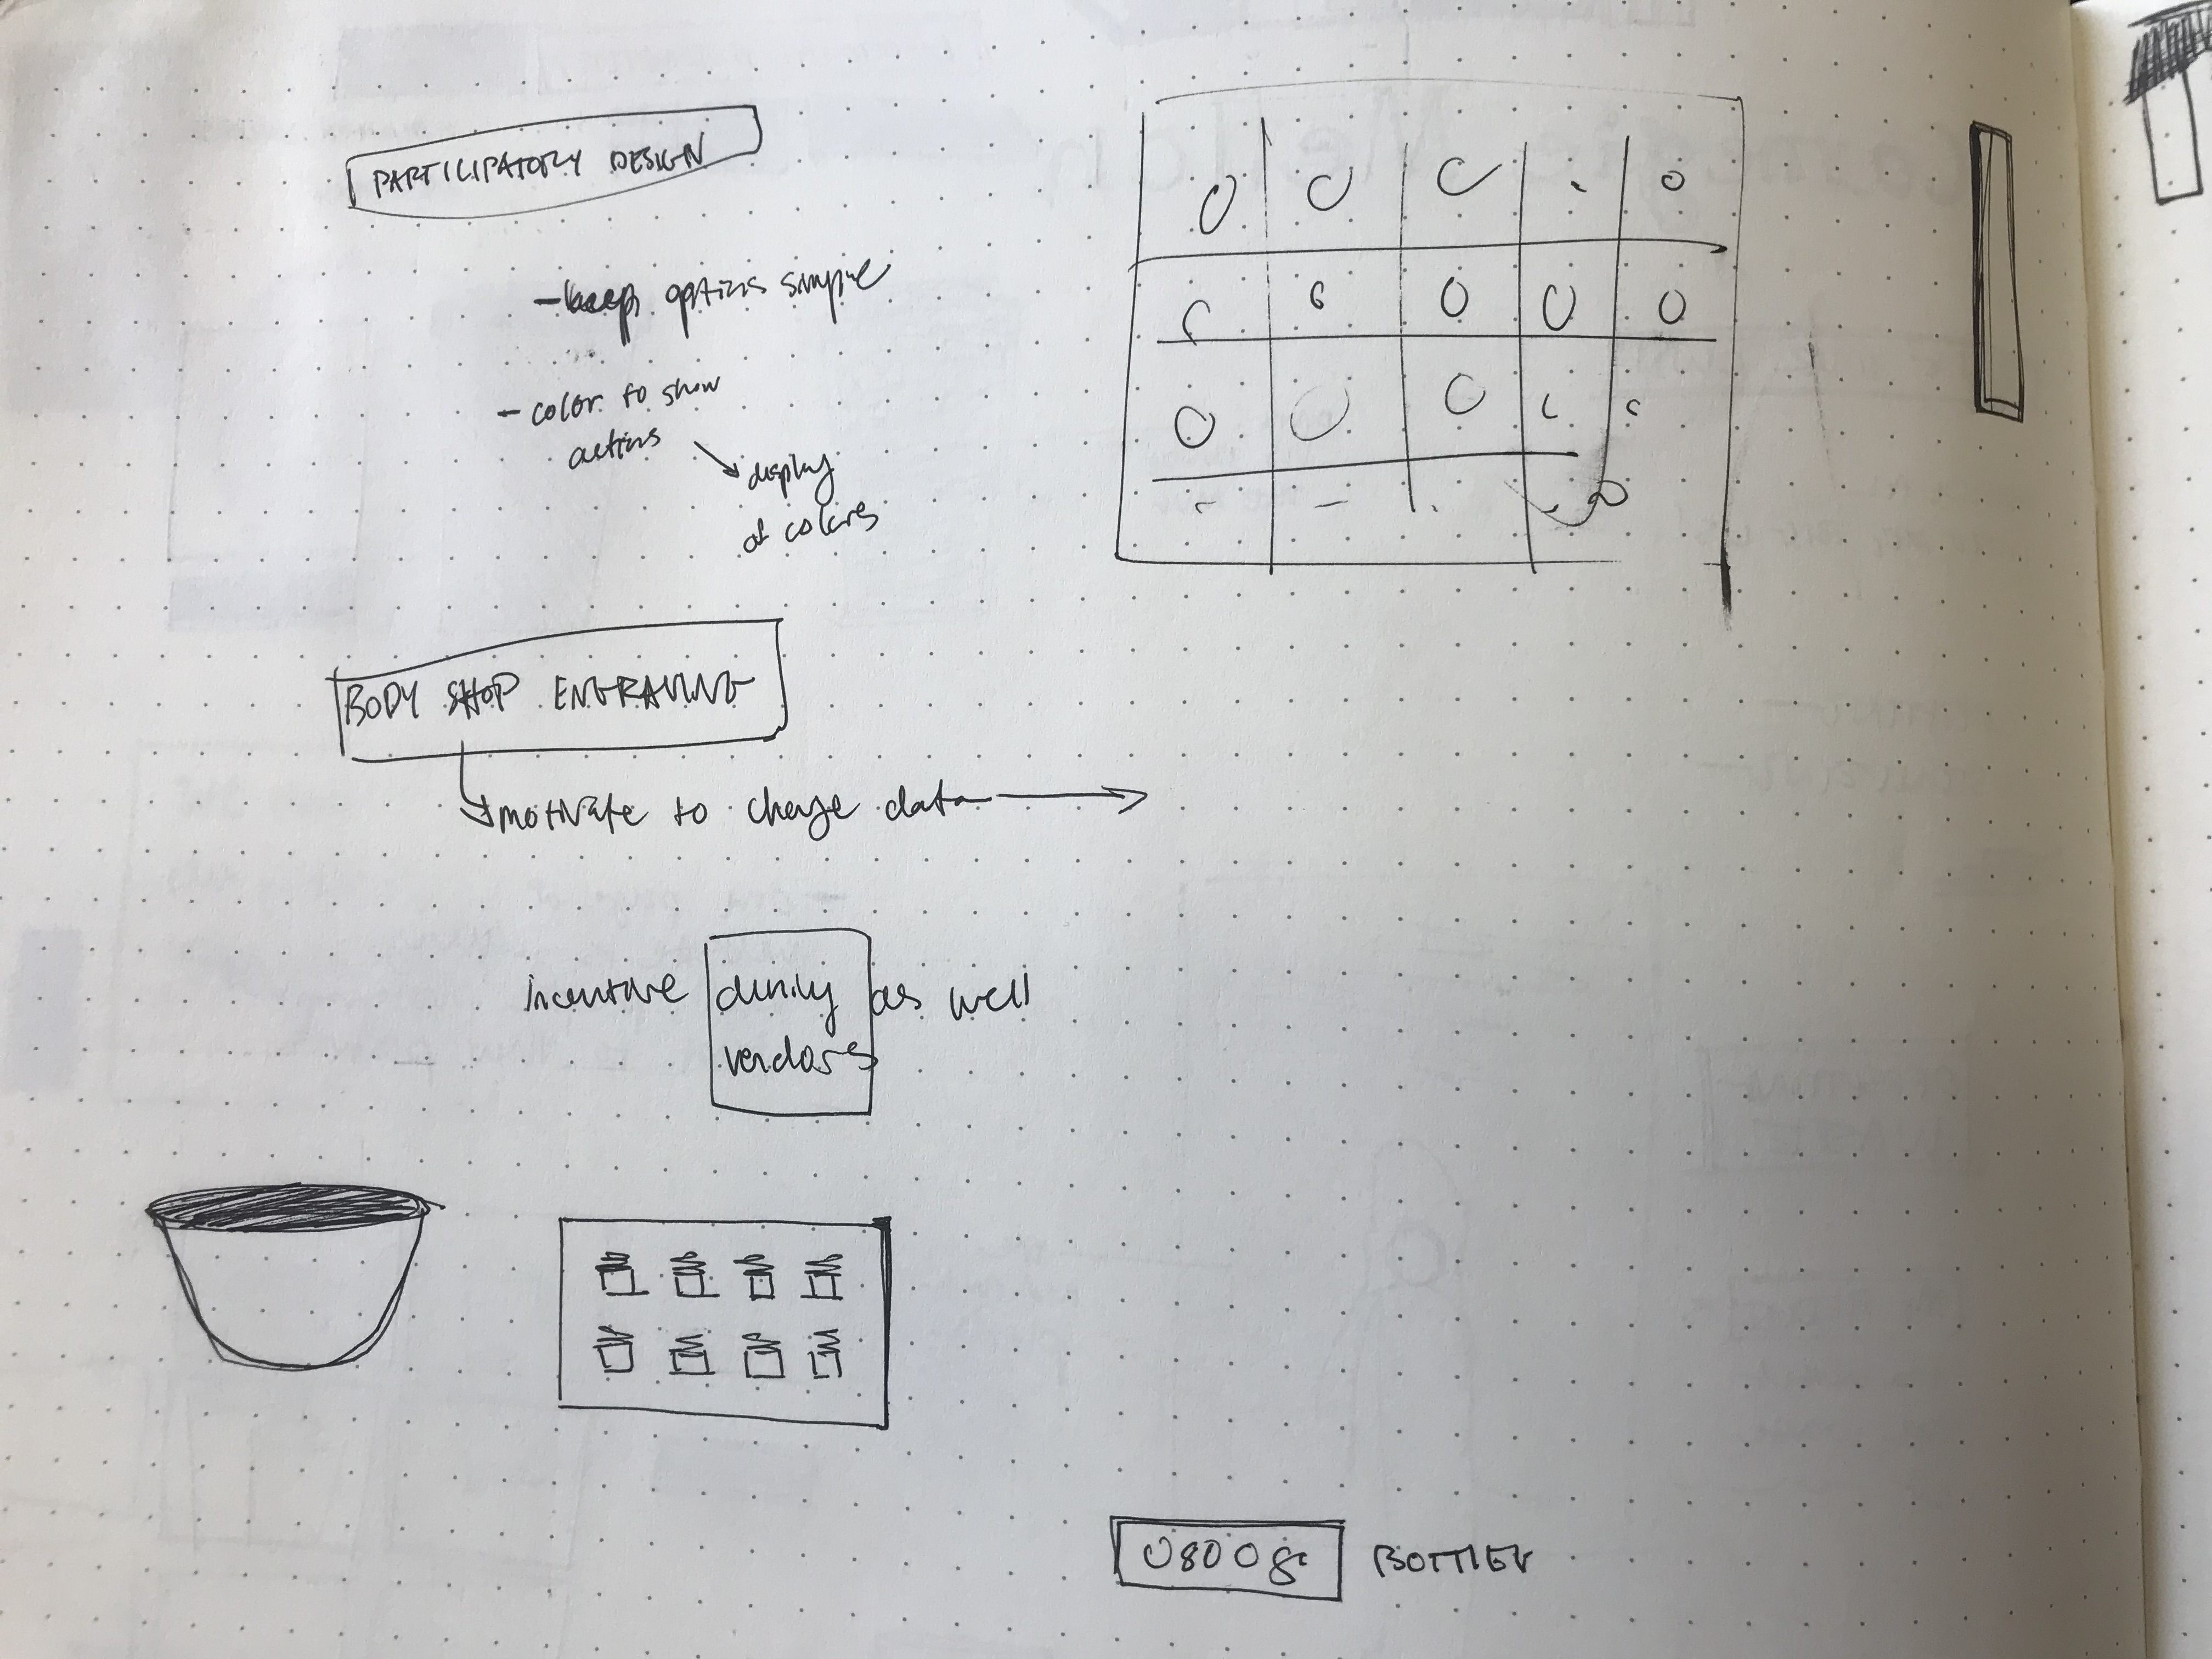 PARTICIPATORY DESIGN
- keep options simple
- color to show
actions
display
of colors
BODY SHOP ENGRAVING
motivate to change data
incentive as well
vendors
BOTTLES